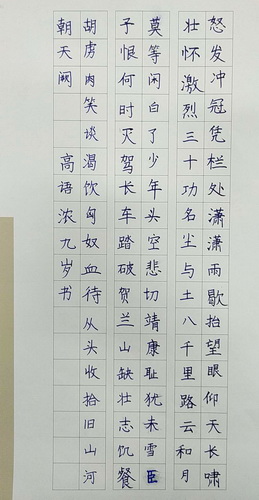 怒发冲冠凭栏处潇潇雨歇抬望眼仰天长啸
壮怀激烈三十功名尘与土八千里路云和月
莫等闲白了少年头空悲切靖康耻犹未雪臣
子恨何时灭驾长车踏破贺兰山缺壮志饥餐
胡虏肉笑谈渴饮匈奴血待从头收拾旧山河
朝天阙 高语浓九岁书